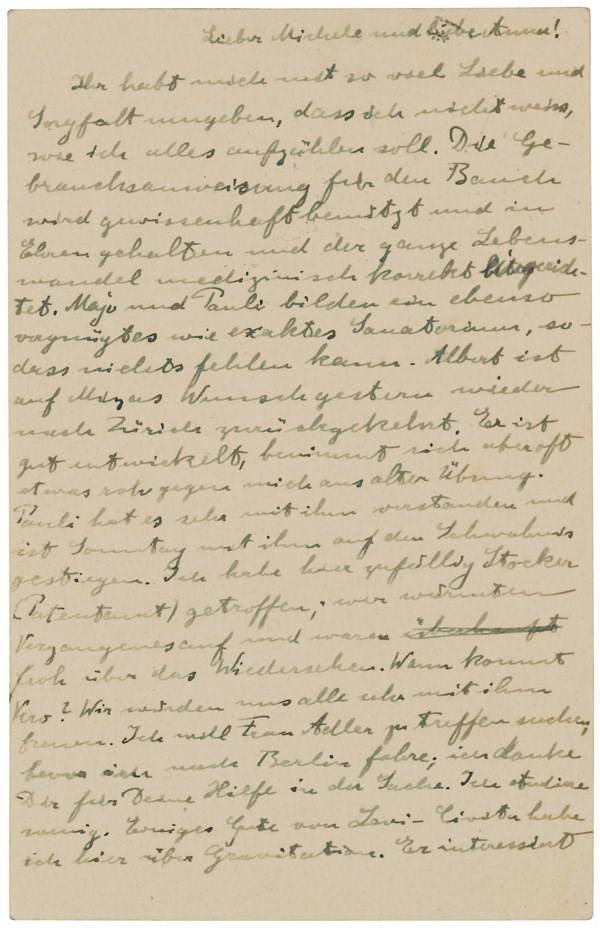 Lieber Michele und liebe Anna!
Ihr habt mich mit so viel Liebe und
Sorgfalt umgeben, dass ich nicht weiss,
wie ich alles aufzählen soll. Die Ge-
brauchsanweisung für den Bauch
wird gewissenhaft benützt und in
Ehren gehalten und der ganze Lebens-
wandel medizinisch korrekt
tet. Maja und Pauli bilden ein ebenso
vergnügtes wie exaktes Sanatorium, so-
dass nichts fehlen kann. Albert ist
auf Mizas Wunsch gestern wieder
nach Zürich zurückgekehrt. Er ist
gut entwickelt, benimmt sich aber oft
etwas roh gegen mich aus alter Übung.
Pauli hat es sehr mit ihm verstanden und
ist Sonntag mit ihm auf den
gestiegen. Ich habe hier zufällig Stocker
(Patentamt) getroffen; wir wärmten
Vergangenes auf und waren überhaupt
froh über das Wiedersehen. Wann kommt
Vero? Wir würden uns alle sehr mit ihm
freuen. Ich will Frau Adler zu treffen suchen,
bevor ich nach Berlin fahre; ich danke
Dir für Deine Hilfe in der Sache. Ich studiere
wenig. Einiges Gute von Levi-Civita habe
ich hier über Gravitation. Er interessiert